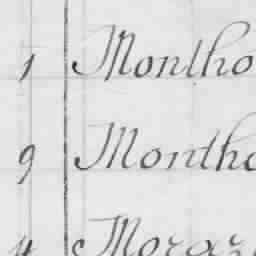 1 Montho
9 Montho
4 Moraz